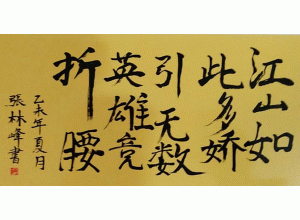 江山如
此多娇
引无数
英雄竞
折腰
乙未年夏月
张林峰书